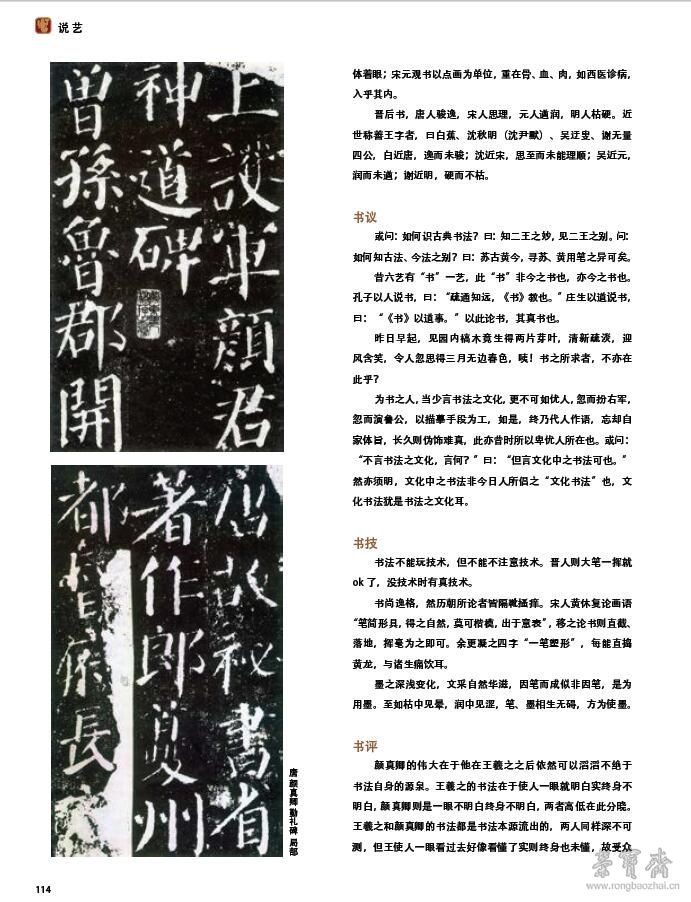 说艺
上護軍顏君
神道碑
曾孫魯郡開
唐故秘書省
著作郎夔州
都督府長
唐 颜真卿 勤礼碑 局部
体着眼；宋元观书以点画为单位，重在骨、血、肉，如西医诊病，
入乎其内。
晋后书，唐人骏逸，宋人思理，元人遒润，明人枯硬。近
世称善王字者，曰白蕉、沈秋明（沈尹默）、吴玉如、谢无量
四公，白近唐，逸而未骏；沈近宋，思至而未能理顺；吴近元，
润而未遒；谢近明，硬而不枯。
书议
或问：如何识古典书法？曰：知二王之妙，见二王之别。问：
如何知古法、今法之别？曰：苏古黄今，寻苏、黄用笔之异可矣。
昔六艺有“书”一艺，此“书”非今之书也，亦今之书也。
孔子以人说书，曰：“疏通知远，《书》教也。”庄生以道说书，
曰：“《书》以道事。”以此论书，其真书也。
昨日早起，见园内槁木竟生得两片芽叶，清新疏淡，迎
风含笑，令人忽思得三月无边春色，咦！书之所求者，不亦在
此乎？
为书之人，当少言书法之文化，更不可如优人，忽而扮右军，
忽而演鲁公，以描摹手段为工，如是，终乃代人作语，忘却自
家体旨，长久则伪饰难真，此亦昔时所以卑优人所在也。或问：
“不言书法之文化，言何？”曰：“但言文化中之书法可也。”
然亦须明，文化中之书法非今日人所倡之“文化书法”也，文
化书法犹是书法之文化耳。
书技
书法不能玩技术，但不能不注意技术。晋人则大笔一挥就
ok 了，没技术时有真技术。
书尚逸格，然历朝所论者皆隔靴搔痒。宋人黄休复论画语
“笔简形具，得之自然，莫可楷模，出于意表”，移之论书则直截、
落地，挥毫为之即可。余更凝之四字“一笔塑形”，每能直捣
黄龙，与诸生痛饮耳。
墨之深浅变化，文采自然华滋，因笔而成似非因笔，是为
用墨。至如枯中见晕，润中见涩，笔、墨相生无碍，方为使墨。
书评
颜真卿的伟大在于他在王羲之之后依然可以滔滔不绝于
书法自身的源泉。王羲之的书法在于使人一眼就明白实终身不
明白，颜真卿则是一眼不明白终身不明白，两者高低在此分晓。
王羲之和颜真卿的书法都是书法本源流出的，两人同样深不可
测，但王使人一眼看过去好像看懂了实则终身也未懂，故受众
荣宝斋
www.rongbaozhai.cn
114